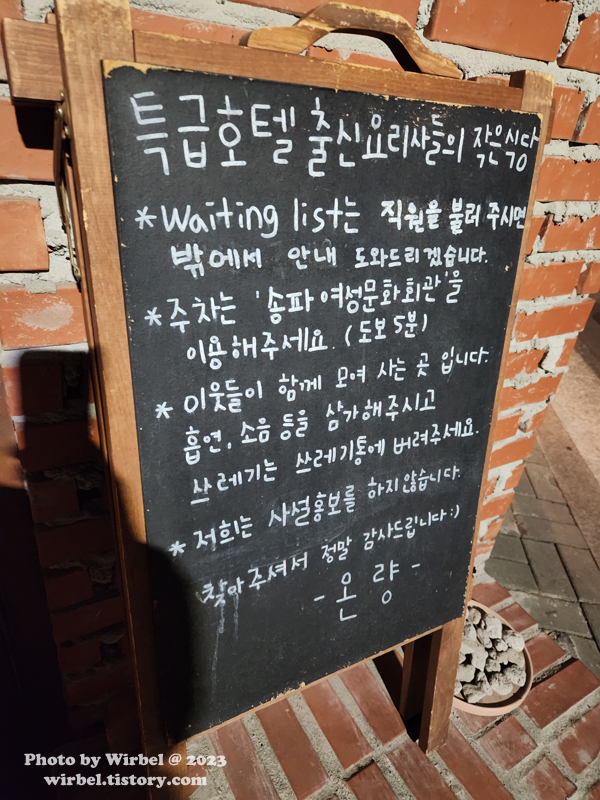 특급호텔 출신요리사들의 작은식당
*Waiting list는 직원을 불러 주시면
밖에서 안내 도와드리겠습니다.
*주차는 '송파여성문화회관'을
이용해주세요. (도보 5분)
* 이웃들이 함께 모여 사는 곳 입니다.
흡연, 소음 등을 삼가해주시고
쓰레기는 쓰레기통에 버려주세요.
* 저희는 사설홍보를 하지않습니다.
찾아주셔서 정말 감사드립니다:)
- 온 량 -
Photo by Wirbel @ 2023
wirbel.tistory.com